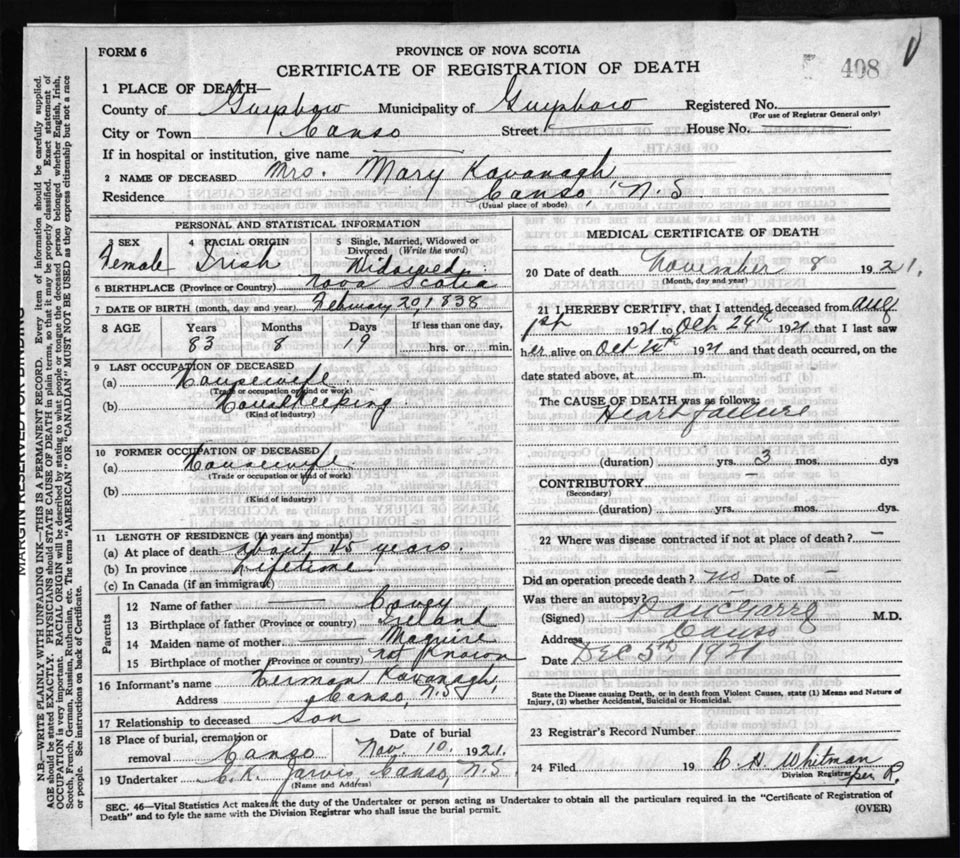 FORM 6
PROVINCE OF NOVA SCOTIA
CERTIFICATE OF REGISTRATION OF DEATH
408
1 PLACE OF DEATH—
County of Guysboro Municipality of Guysboro Registered No.
(For use of Registrar General only)
City or Town Canso Street — House No. —
If in hospital or institution, give name —
2 NAME OF DECEASED Mrs. Mary Kavanagh
Residence Canso, N.S
(Usual place of abode)
PERSONAL AND STATISTICAL INFORMATION
3 SEX 4 RACIAL ORIGIN 5 Single, Married, Widowed or Divorced (Write the word)
Female Irish Widowed
6 BIRTHPLACE (Province or Country) Nova Scotia
7 DATE OF BIRTH (month, day and year) February 20, 1838
8 AGE Years Months Days If less than one day,
83 8 19 hrs. or min.
9 LAST OCCUPATION OF DECEASED
(a) Housewife
(Trade or occupation or kind of work)
(b) Housekeeping
(Kind of industry)
10 FORMER OCCUPATION OF DECEASED
(a) Housewife
(Trade or occupation or kind of work)
(b)
(Kind of industry)
11 LENGTH OF RESIDENCE (in years and months)
(a) At place of death about 45 years.
(b) In province Lifetime
(c) In Canada (if an immigrant)
Parents
12 Name of father — Covey
13 Birthplace of father (Province or country) Ireland
14 Maiden name of mother — Maguire
15 Birthplace of mother (Province or country) not Known
16 Informant's name Herman Kavanagh,
Address Canso, N.S
17 Relationship to deceased Son
18 Place of burial, cremation or removal Canso
Date of burial Nov. 10, 1921.
19 Undertaker C. K. Jarvis, Canso, N.S.
(Name and Address)
MEDICAL CERTIFICATE OF DEATH
20 Date of death November 8 1921.
(Month, day and year)
21 I HEREBY CERTIFY, that I attended deceased from Aug
1st 1921 to Oct 24th 1921 that I last saw
her alive on Oct 1921 and that death occurred, on the
date stated above, at m.
The CAUSE OF DEATH was as follows:
Heart failure
(duration) yrs. 3 mos. dys
CONTRIBUTORY —
(Secondary)
(duration) yrs. mos. dys.
22 Where was disease contracted if not at place of death? —
Did an operation precede death? no Date of —
Was there an autopsy?
(Signed) M.D.
Address Canso
Date Dec 5th 1921
State the Disease causing Death, or in death from Violent Causes, state (1) Means and Nature of Injury, (2) whether Accidental, Suicidal or Homicidal.
23 Registrar's Record Number
24 Filed 19 C. H. Whitman
Division Registrar
per R.
SEC. 46—Vital Statistics Act makes it the duty of the Undertaker or person acting as Undertaker to obtain all the particulars required in the "Certificate of Registration of
Death" and to fyle the same with the Division Registrar who shall issue the burial permit.
(OVER)
MARGIN RESERVED FOR BINDING
N.B.—WRITE PLAINLY WITH UNFADING INK—THIS IS A PERMANENT RECORD. Every item of information should be carefully supplied.
AGE should be stated EXACTLY. PHYSICIANS should STATE CAUSE OF DEATH in plain terms, so that it may be properly classified. Exact statement of
OCCUPATION is very important. RACIAL ORIGIN will be described by stating to what people or tongue the deceased person belonged whether English, Irish,
Scotch, French, German, Russian, Ruthenian, etc. The terms "AMERICAN" OR "CANADIAN" MUST NOT BE USED as they express citizenship but not a race
or people. See instructions on back of Certificate.